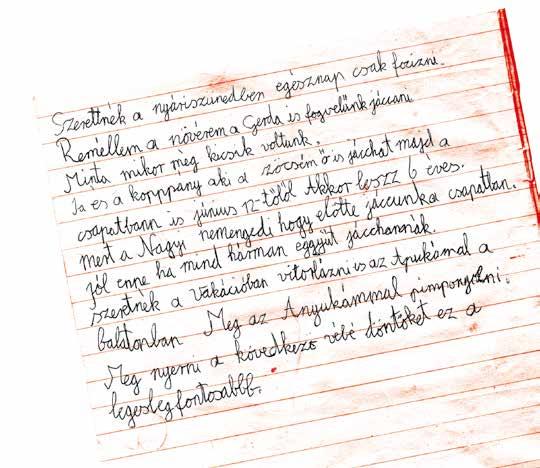 Szerettnék a nyáriszünedben egésznap csak focizni.
Reméllem a növérem a Gerda is fogvelünk jáccani
Minta mikor még kicsik voltunk.
Ja és a kopppány aki a zöcsém ő is jáchat majd a
csapatbann is június 12-től Akkor leszz 6 éves.
mert a Nagyi nemengedi hogy előtte jáccunka csapatlan.
jól enne ha mind hárman eggyüt jácchannák.
szeretnék a vakációban vitorlázni is az Apukámal a
balatonban Meg az Anyukámmal pimpongozni.
Meg nyerni a kövedkező vébé döntőket ez a
legeslegfontosabbb.